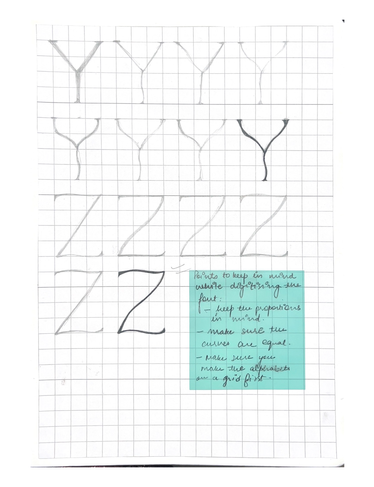 Y Y Y Y
Y Y Y Y
Z Z Z Z
Z Z
Points to keep in mind
while digitizing the
font.
– keep the proportions
in mind.
– make sure the
curves are equal.
– make sure you
make the alphabets
on a grid first.